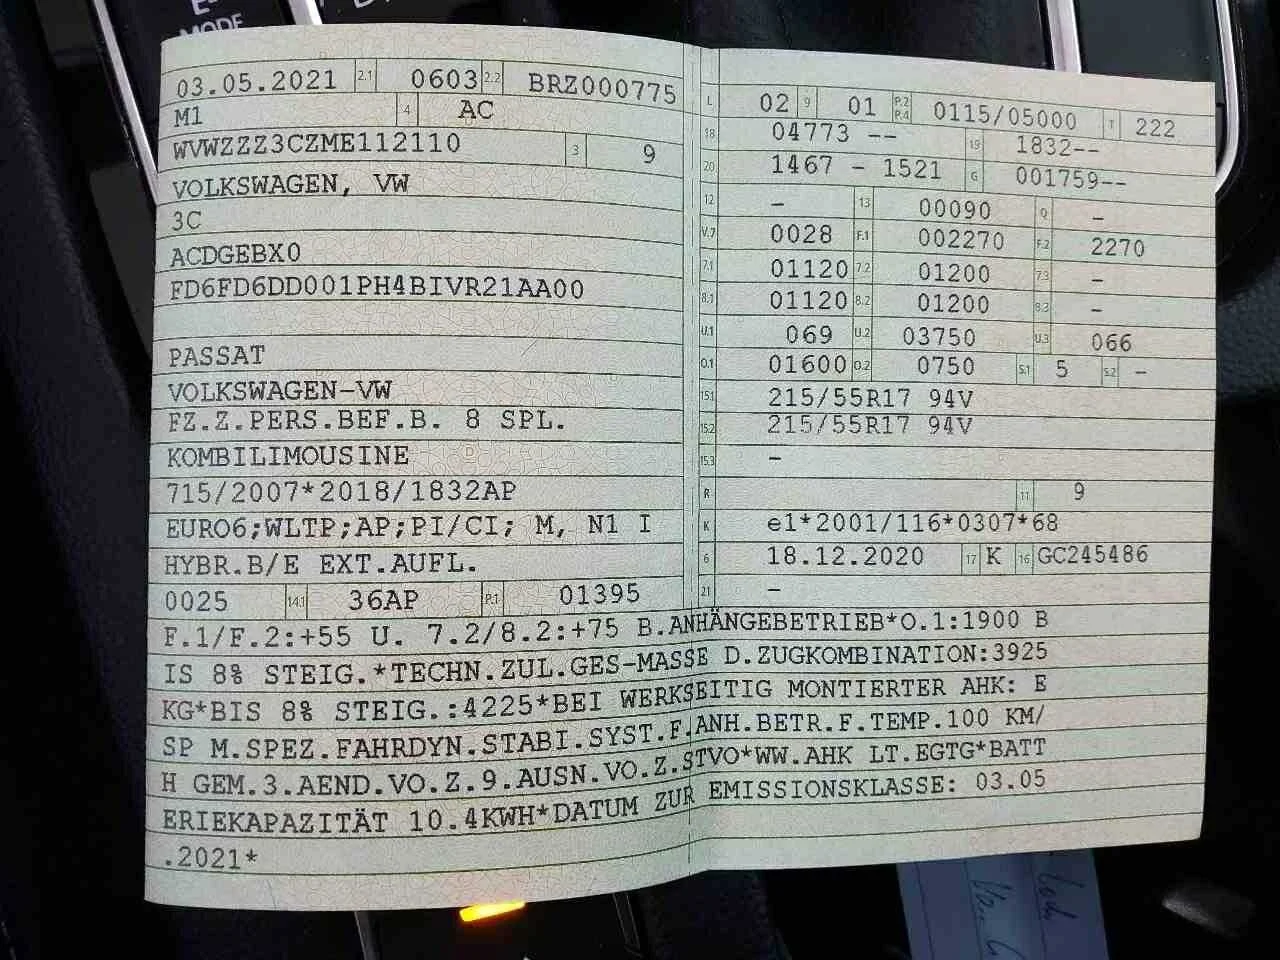 MODE
03.05.2021 2.1 0603 2.2 BRZ000775
M1 4 AC
WVWZZZ3CZME112110 3 9
VOLKSWAGEN, VW
3C
ACDGEBX0
FD6FD6DD001PH4BIVR21AA00
PASSAT
VOLKSWAGEN-VW
FZ.Z.PERS.BEF.B. 8 SPL.
KOMBILIMOUSINE
715/2007*2018/1832AP
EURO6;WLTP;AP;PI/CI; M, N1 I
HYBR.B/E EXT.AUFL.
0025 14.1 36AP P.1 01395
L 02 9 01 P.2 P.4 0115/05000 T 222
18 04773 -- 19 1832--
20 1467 - 1521 G 001759--
12 - 13 00090 Q -
V.7 0028 F.1 002270 F.2 2270
7.1 01120 7.2 01200 7.3 -
8.1 01120 8.2 01200 8.3 -
U.1 069 U.2 03750 U.3 066
O.1 01600 O.2 0750 S.1 5 S.2 -
15.1 215/55R17 94V
15.2 215/55R17 94V
15.3 -
R 11 9
K e1*2001/116*0307*68
6 18.12.2020 17 K 16 GC245486
21 -
F.1/F.2:+55 U. 7.2/8.2:+75 B.ANHÄNGEBETRIEB*O.1:1900 B
IS 8% STEIG.*TECHN.ZUL.GES-MASSE D.ZUGKOMBINATION:3925
KG*BIS 8% STEIG.:4225*BEI WERKSEITIG MONTIERTER AHK: E
SP M.SPEZ.FAHRDYN.STABI.SYST.F.ANH.BETR.F.TEMP.100 KM/
H GEM.3.AEND.VO.Z.9.AUSN.VO.Z.STVO*WW.AHK LT.EGTG*BATT
ERIEKAPAZITÄT 10.4KWH*DATUM ZUR EMISSIONSKLASSE: 03.05
.2021*